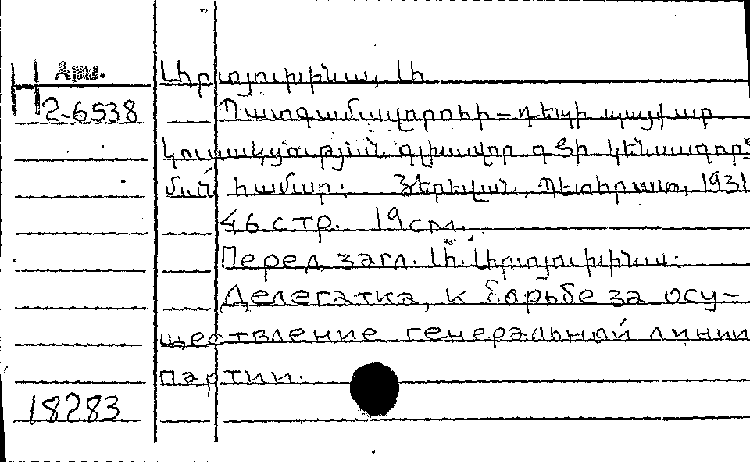 Арм.
H
2-6538
Պատգամավորուհի - դեպի պայքար
կուսակցության գլխավոր գծի կենսագոր-
ման համար. Յերևան, Պետհրատ, 1931
46 стр. 19 см.
Перед загл.
Делегатка, к борьбе за осу-
ществление генеральной линии
партии.
18283